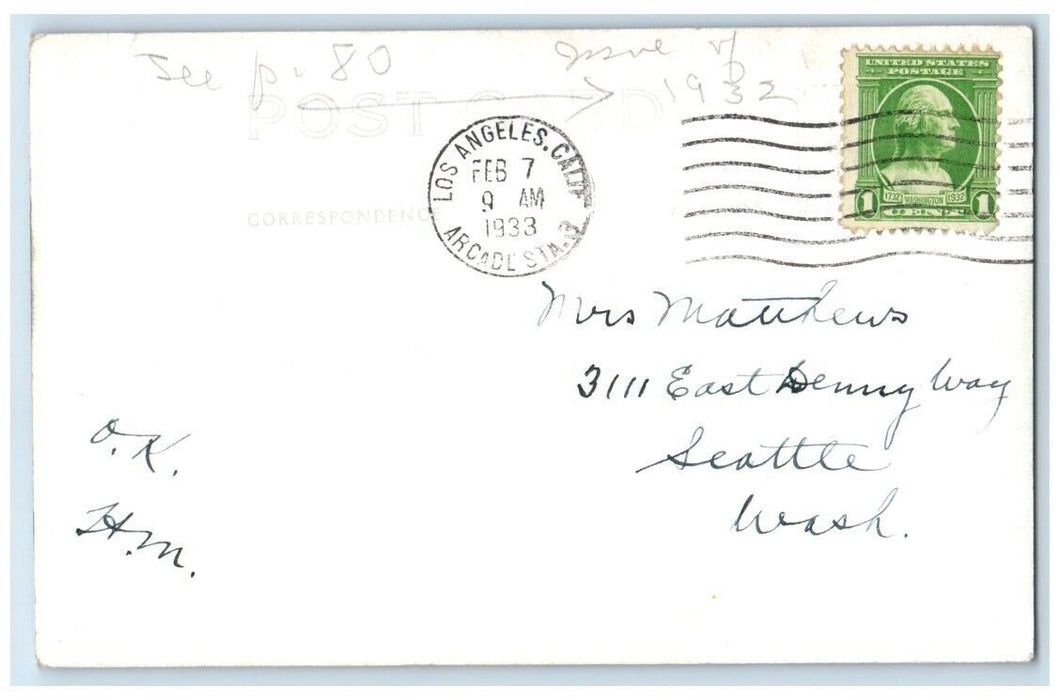 See p. 80 issue of
1932
POST CARD
CORRESPONDENCE
LOS ANGELES, CALIF.
FEB 7
9 AM
1933
ARCADE STA.
UNITED STATES
POSTAGE
1732 WASHINGTON 1932
1 CENT 1
Mrs Matthews
3111 East Denny Way
Seattle
Wash.
O.K.
H.M.